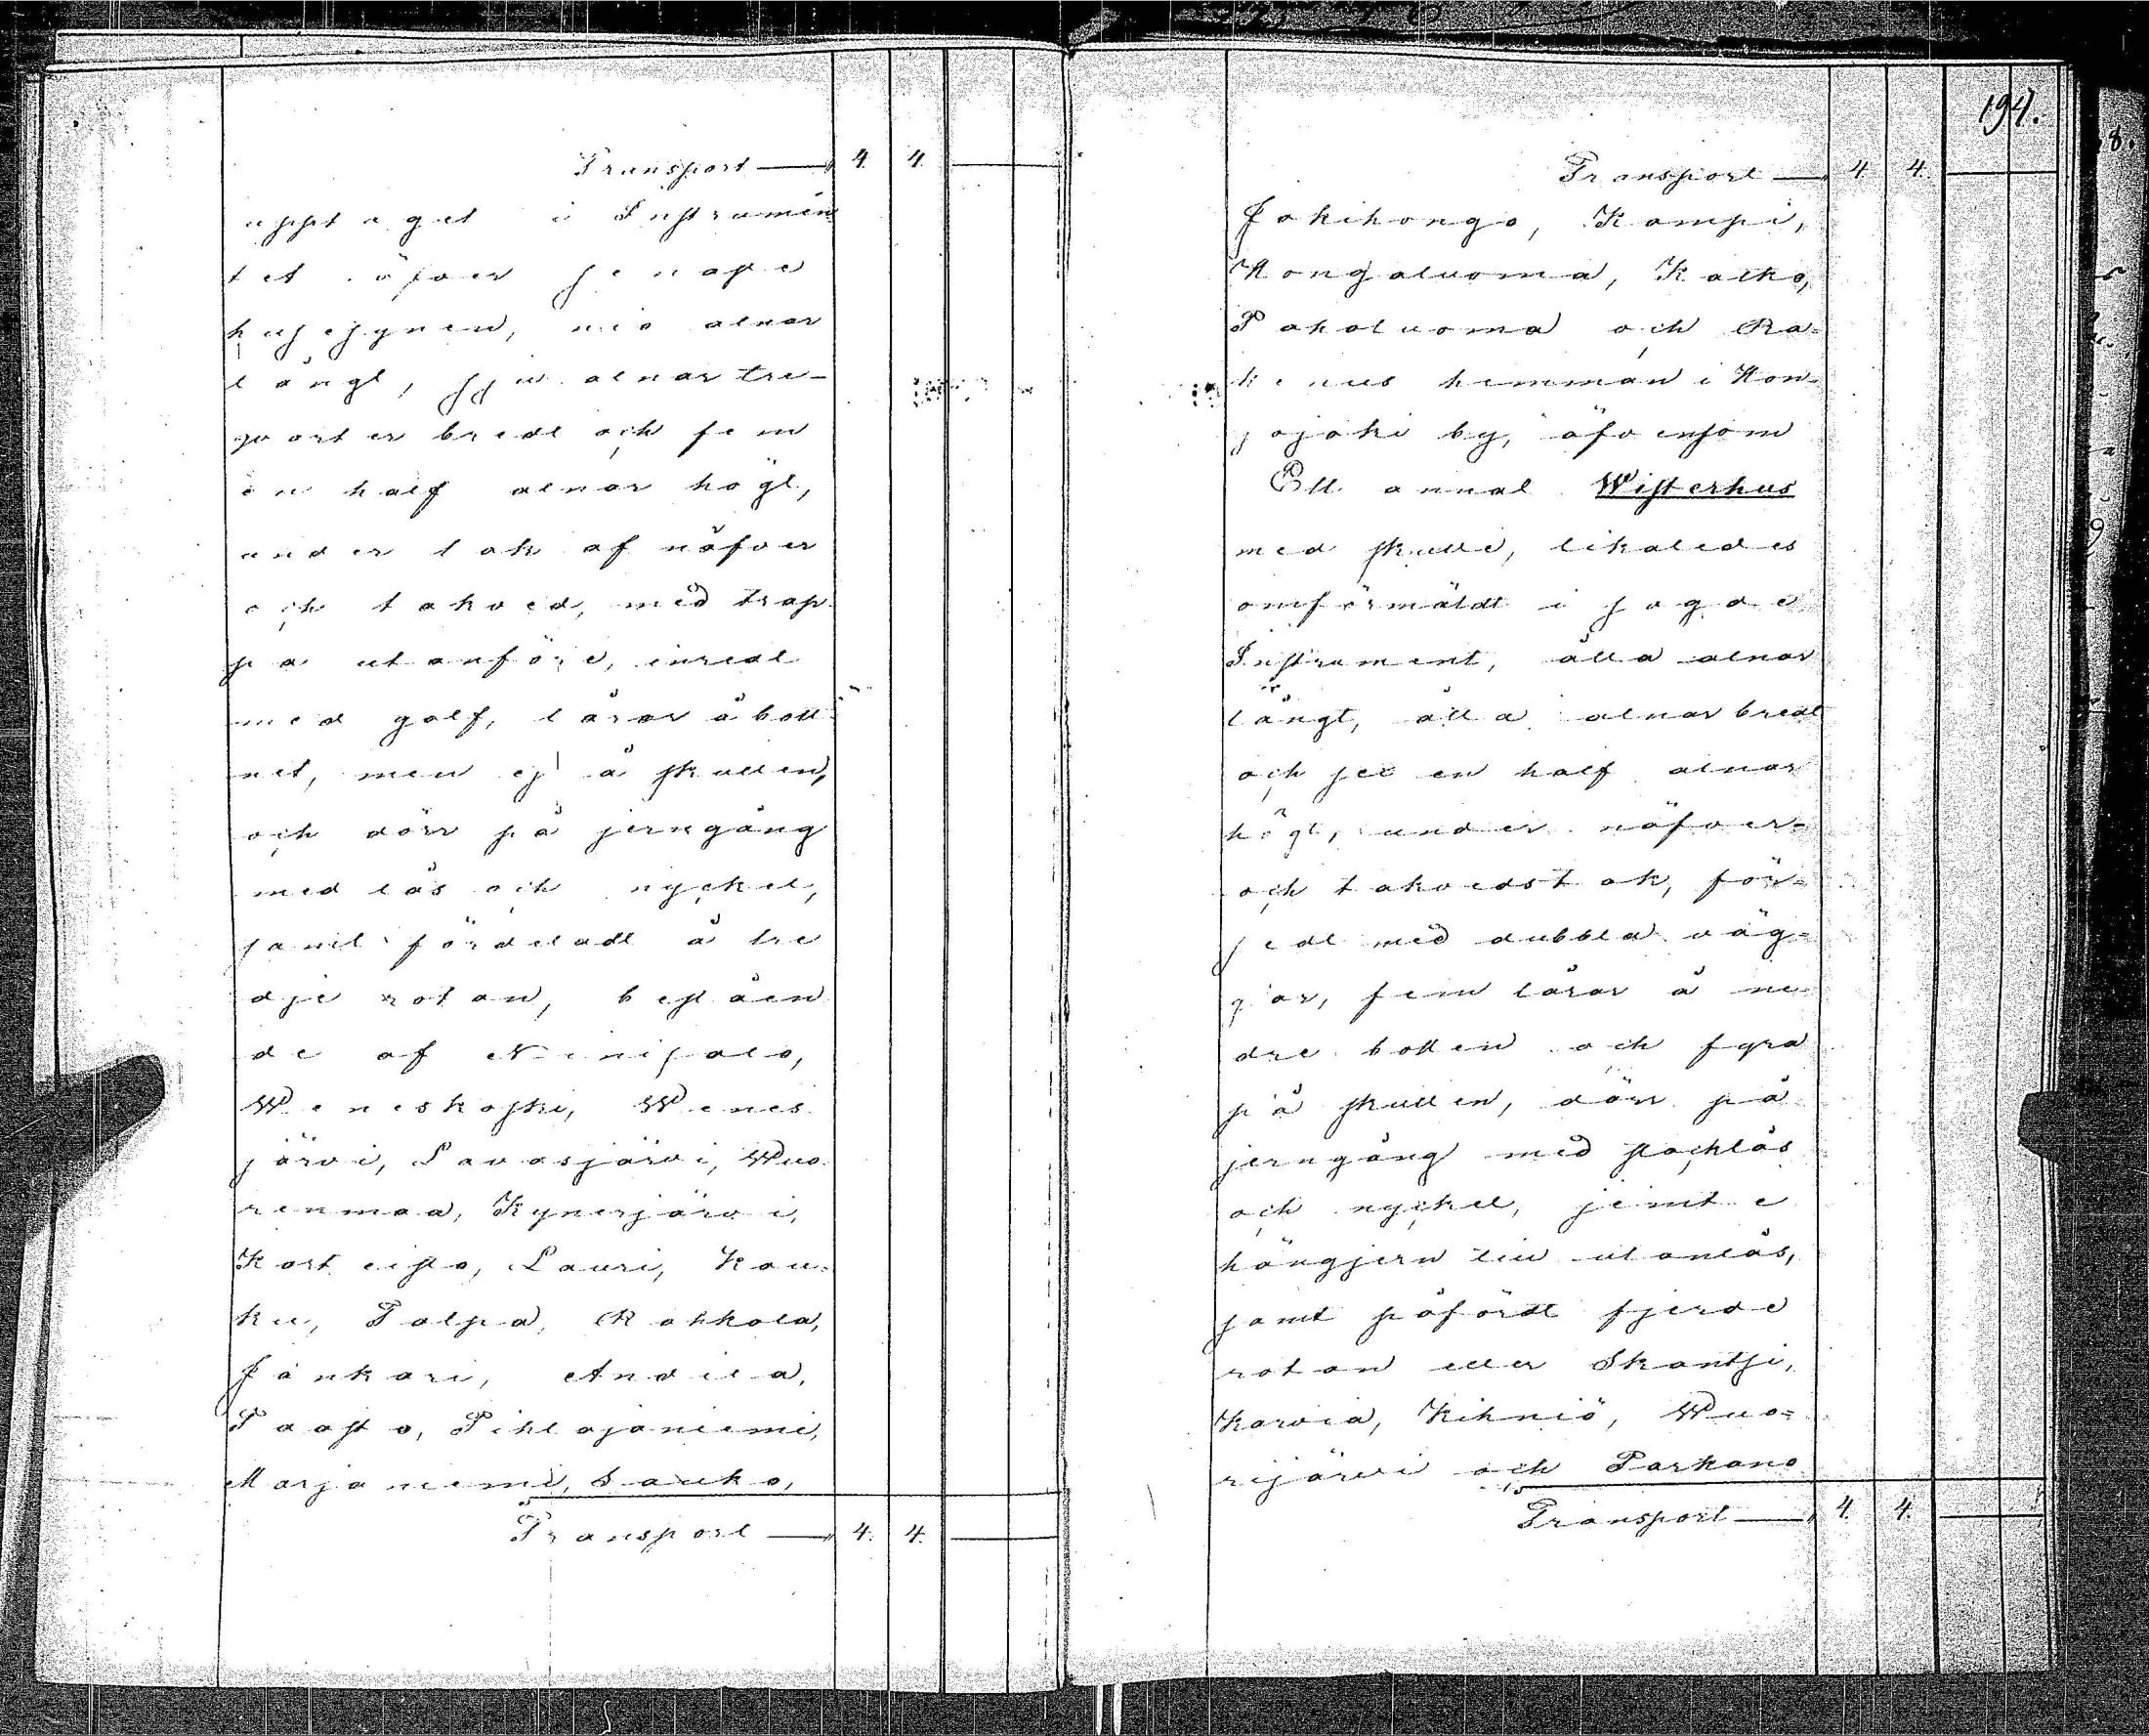 Transport — 4. 4.
upptaget i Instrumen
tet öfver senaste
husesynen, nio alnar
långt, sju alnar tre-
qvarter bredt och fem
en half alnar högt,
under tak af näfver
och takved, med trap
pa utanföre, inredt
med golf, lårar å bott
net, men ej å skullen,
och dörr på jerngång
med lås och nyckel,
samt fördeladt å tre
dje rotan, beståen
de af Niinisalo,
Weneskoski, Wenes
järvi, Lavasjärvi, Wuo
renmaa, Kynesjärvi,
Korteisto, Lauri, Kau-
ku, Talpa, Rahkola,
Jänkäri, Andila,
Paasto, Pihlajaniemi,
Marjaniemi, Sauko,
Transport — 4. 4.
194.
Transport — 4. 4.
Jokihongo, Kampi,
Hongaluoma, Katko,
Pakoluoma och Ra-
kenus hemman i Hon-
gojoki by, äfvensom
Ett annat Wisterhus
med skulle, likaledes
omförmäldt i sagde
Instrument, åtta alnar
långt, åtta alnar bredt
och sex en half alnar
högt, under näfver-
och takvedstak, för-
sedt med dubbla väg-
gar, fem lårar å ne
dre botten och fyra
på skullen, dörr på
jerngång med stocklås
och nyckel, jemte
hängjern till utanlås,
samt påfördt fjerde
rotan eller Skantsi,
Karvia, Kihniö, Wuo-
rijärvi och Parkano
Transport — 4. 4.